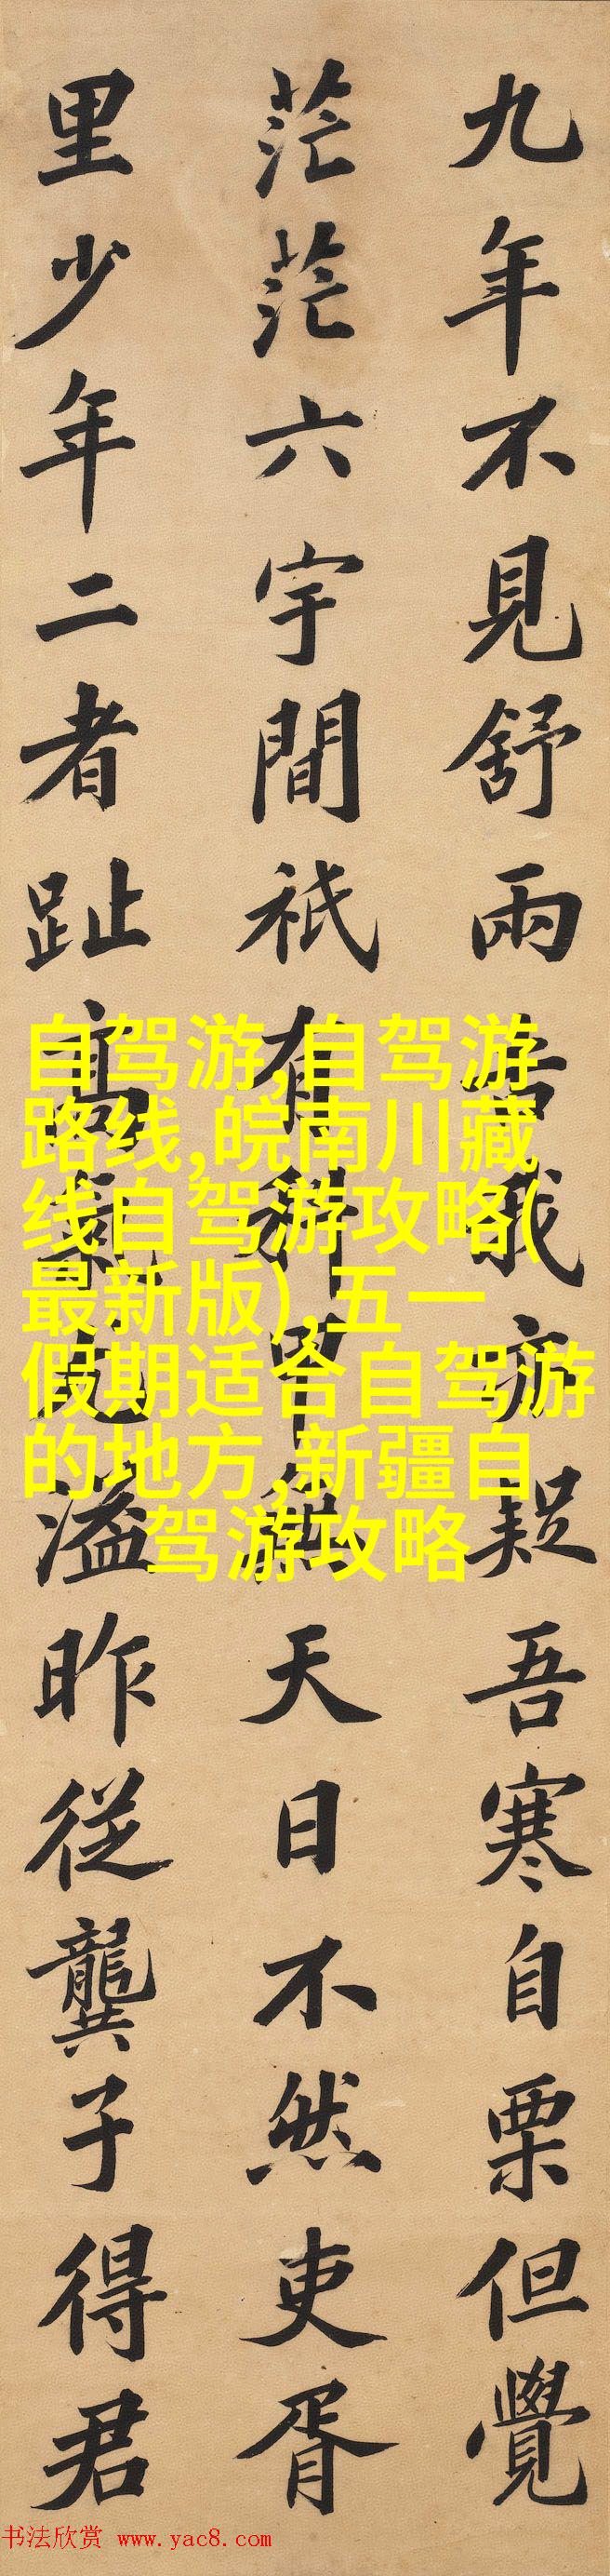 九年不見舒雨我亦疑吾寒自栗但覺
茫茫六宇間祇有科甲無天日不然吏胥
里少年二者趾高氣溢昨從龔子得君
自驾游,自驾游
路线,皖南川藏
线自驾游攻略(
最新版),五一
假期适合自驾游
的地方,新疆自
驾游攻略
书法欣赏 www.yac8.com